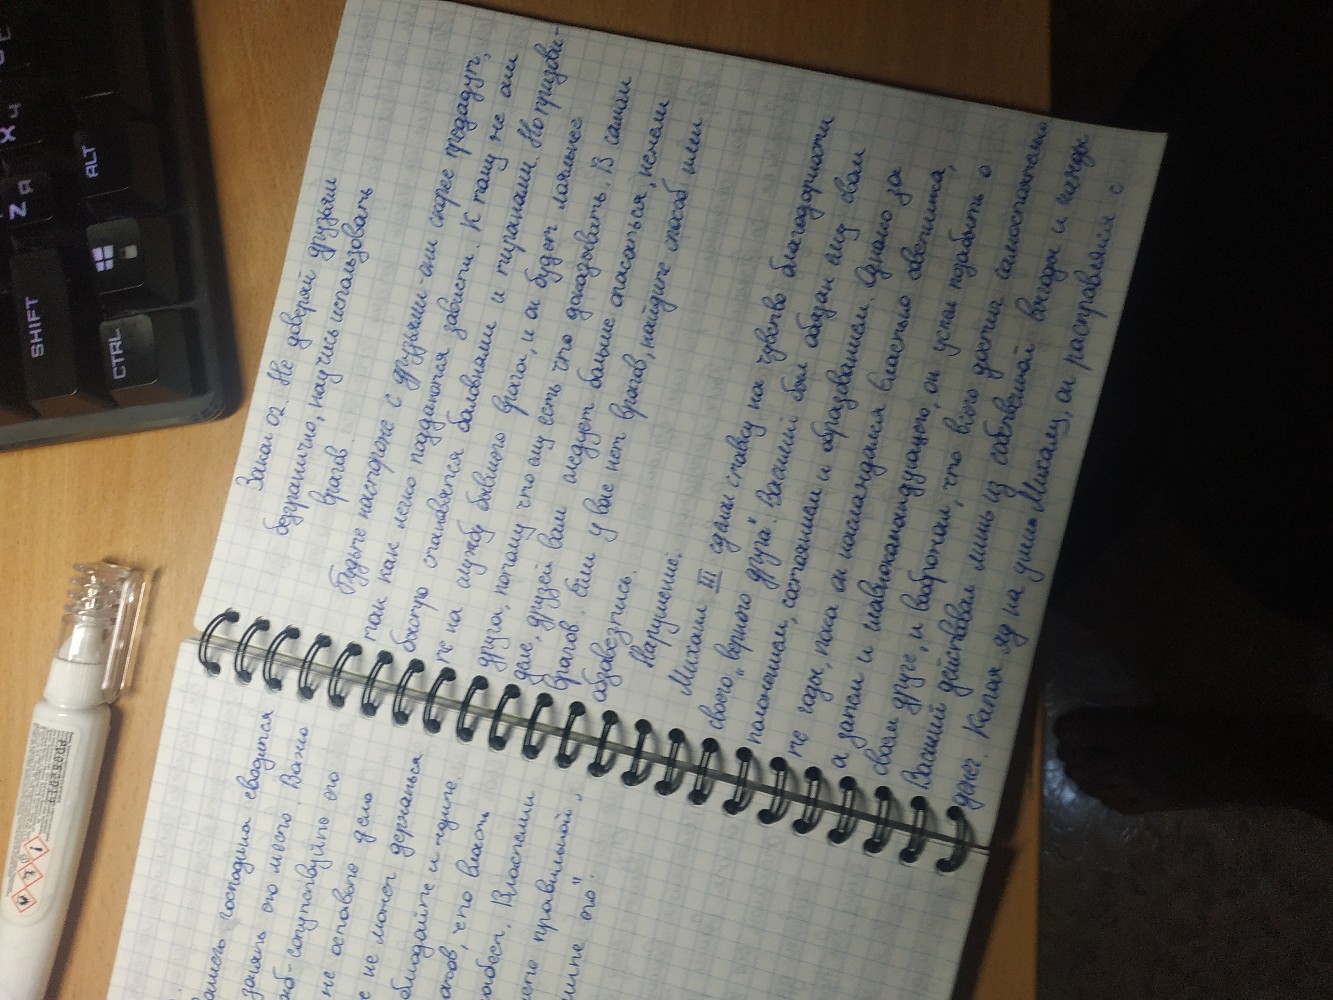 SHIFT
Z Я
X Ч
C
CTRL
ALT
господина сводится
занять его место. Важно
сопутствуйте его
не оставьте дело
не может держаться
и ждите.
что власть
Властели
правильной,
его".
Закон 02. Не доверяй друзьям
безгранично, научись использовать
врагов.
Будьте настороже с друзьями-они скорее предадут,
так как легко поддаются зависти. К тому же они
быстро становятся баловнями и тиранами. Но призови-
те на службу бывшего врага, и он будет лояльнее
друга, потому что ему есть что доказывать. В самом
деле, друзей вам следует больше опасаться, нежели
врагов. Если у вас нет врагов, найдите способ ими
обзавестись.
Нарушение:
Михаил III сделал ставку на чувство благодарности
своего „верного друга". Василий был обязан ему свои
положением, состоянием и образованием. Однако за
те годы, пока он наслаждался властью советника,
а затем и главнокомандующего, он успел позабыть о
своем друге, и вообразил, что всего достиг самостоятельно.
Василий действовал лишь из собственной выгоды и жажды
денег. Капая яд на уши Михаилу, он расправлялся с